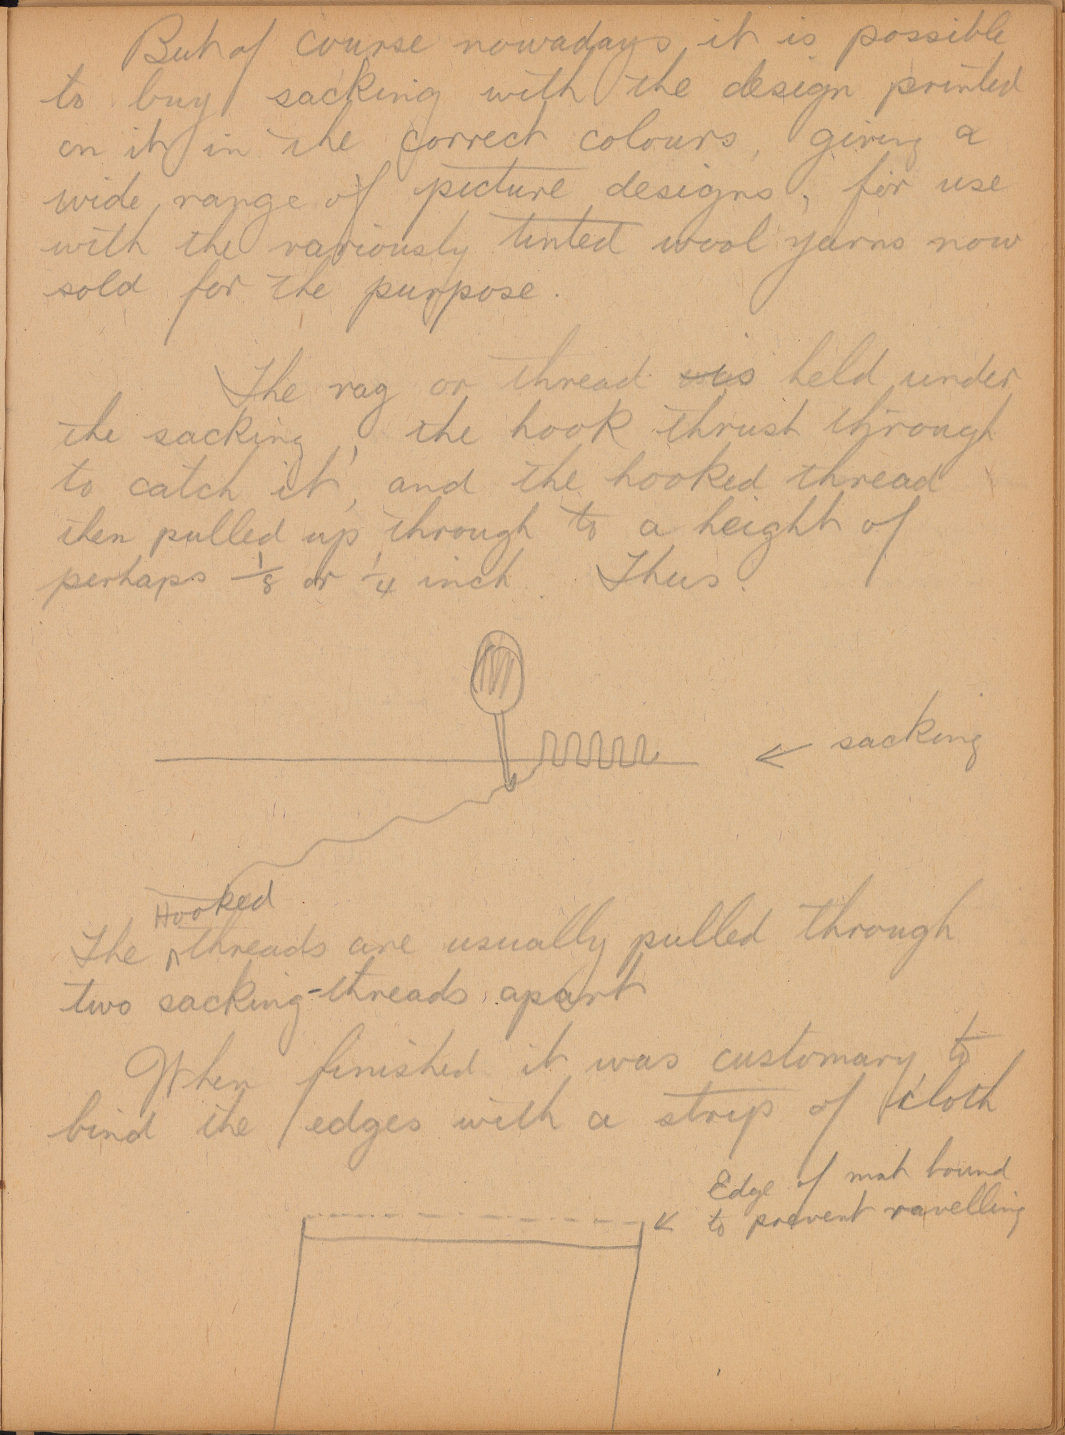 But of course nowadays, it is possible
to buy sacking with the design printed
on it in the correct colours, giving a
wide range of picture designs, for use
with the variously tinted wool yarns now
sold for the purpose.
The rag or thread is held under
the sacking, the hook thrust through
to catch it, and the hooked thread
then pulled up through to a height of
perhaps 1/8 or 1/4 inch. Thus.
← sacking
Hooked
The ^ threads are usually pulled through
two sacking-threads apart
When finished it was customary to
bind the edges with a strip of cloth
Edge of mat bound
← to prevent ravelling